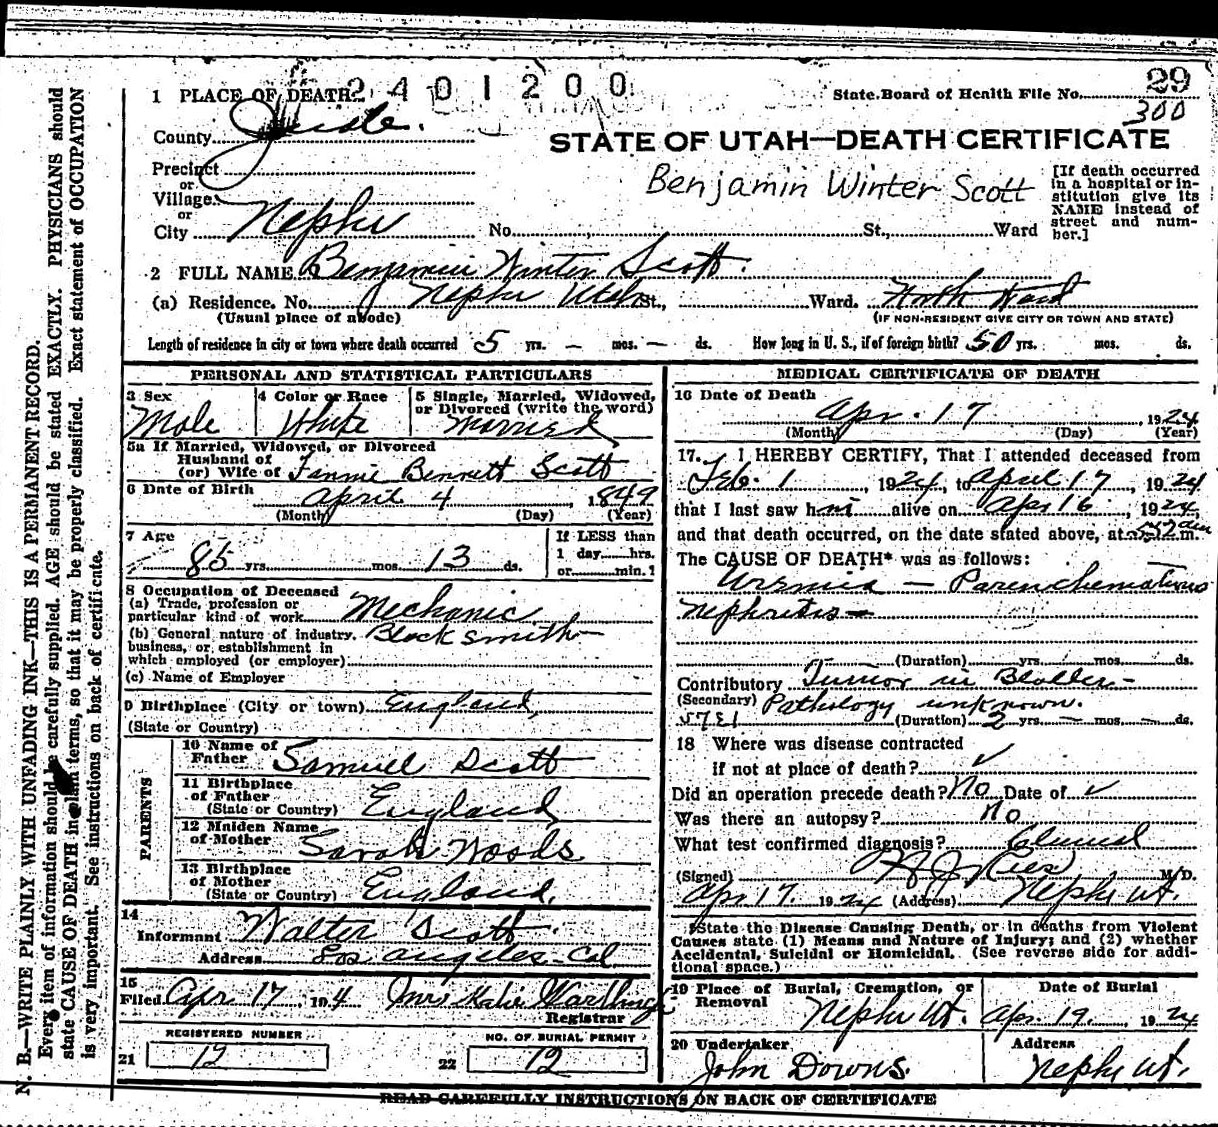 2401200
29
1 PLACE OF DEATH
State Board of Health File No.
300
County Juab.
STATE OF UTAH—DEATH CERTIFICATE
Precinct
or
Village
or
City Nephi
Benjamin Winter Scott
[If death occurred
in a hospital or in-
stitution give its
NAME instead of
street and num-
ber.]
No. St., Ward
2 FULL NAME Benjamin Winter Scott.
(a) Residence. No. Nephi Utah St., Ward. North Ward
(Usual place of abode) (IF NON-RESIDENT GIVE CITY OR TOWN AND STATE)
Length of residence in city or town where death occurred 5 yrs. — mos. — ds. How long in U. S., if of foreign birth? 50 yrs. mos. ds.
PERSONAL AND STATISTICAL PARTICULARS
3 Sex 4 Color or Race 5 Single, Married, Widowed,
or Divorced (write the word)
Male White Married
5a If Married, Widowed, or Divorced
Husband of
(or) Wife of Fannie Bennett Scott
6 Date of Birth April 4, 1849
(Month) (Day) (Year)
7 Age If LESS than
1 day hrs.
or min.?
85 yrs. mos. 13 ds.
8 Occupation of Deceased
(a) Trade, profession or
particular kind of work Mechanic
(b) General nature of industry, Blacksmith
business, or establishment in
which employed (or employer)
(c) Name of Employer
9 Birthplace (City or town) England,
(State or Country)
PARENTS
10 Name of
Father Samuel Scott
11 Birthplace
of Father England
(State or Country)
12 Maiden Name
of Mother Sarah Woods
13 Birthplace
of Mother England.
(State or Country)
14
Informant Walter Scott.
Address Los Angeles-Cal
15
Filed Apr 17 1924 Mrs Katie
Registrar
REGISTERED NUMBER NO. OF BURIAL PERMIT
21 12 22 12
MEDICAL CERTIFICATE OF DEATH
16 Date of Death
Apr. 17, 1924
(Month) (Day) (Year)
17. I HEREBY CERTIFY, That I attended deceased from
Feb. 1, 1924, to April 17, 1924
that I last saw him alive on Apr 16, 1924,
and that death occurred, on the date stated above, at m.
The CAUSE OF DEATH* was as follows:
Uremia — Parenchematous
nephritis —
(Duration) yrs. mos. ds.
Contributory Tumor in Bladder —
(Secondary) Pathology unknown.
(Duration) 2 yrs. — mos. — ds.
18 Where was disease contracted
if not at place of death? ✓
Did an operation precede death? No Date of ✓
Was there an autopsy? No
What test confirmed diagnosis? Clinical
(Signed) M. D.
Apr. 17. 1924 (Address) Nephi Ut.
*State the Disease Causing Death, or in deaths from Violent
Causes state (1) Means and Nature of Injury; and (2) whether
Accidental, Suicidal or Homicidal. (See reverse side for addi-
tional space.)
19 Place of Burial, Cremation, or
Removal Nephi Ut.
Date of Burial
Apr. 19, 1924
20 Undertaker
John Downs.
Address
Nephi Ut.
READ CAREFULLY INSTRUCTIONS ON BACK OF CERTIFICATE
N. B.—WRITE PLAINLY WITH UNFADING INK—THIS IS A PERMANENT RECORD.
Every item of information should be carefully supplied. AGE should be stated EXACTLY. PHYSICIANS should
state CAUSE OF DEATH in plain terms, so that it may be properly classified. Exact statement of OCCUPATION
is very important. See instructions on back of certificate.